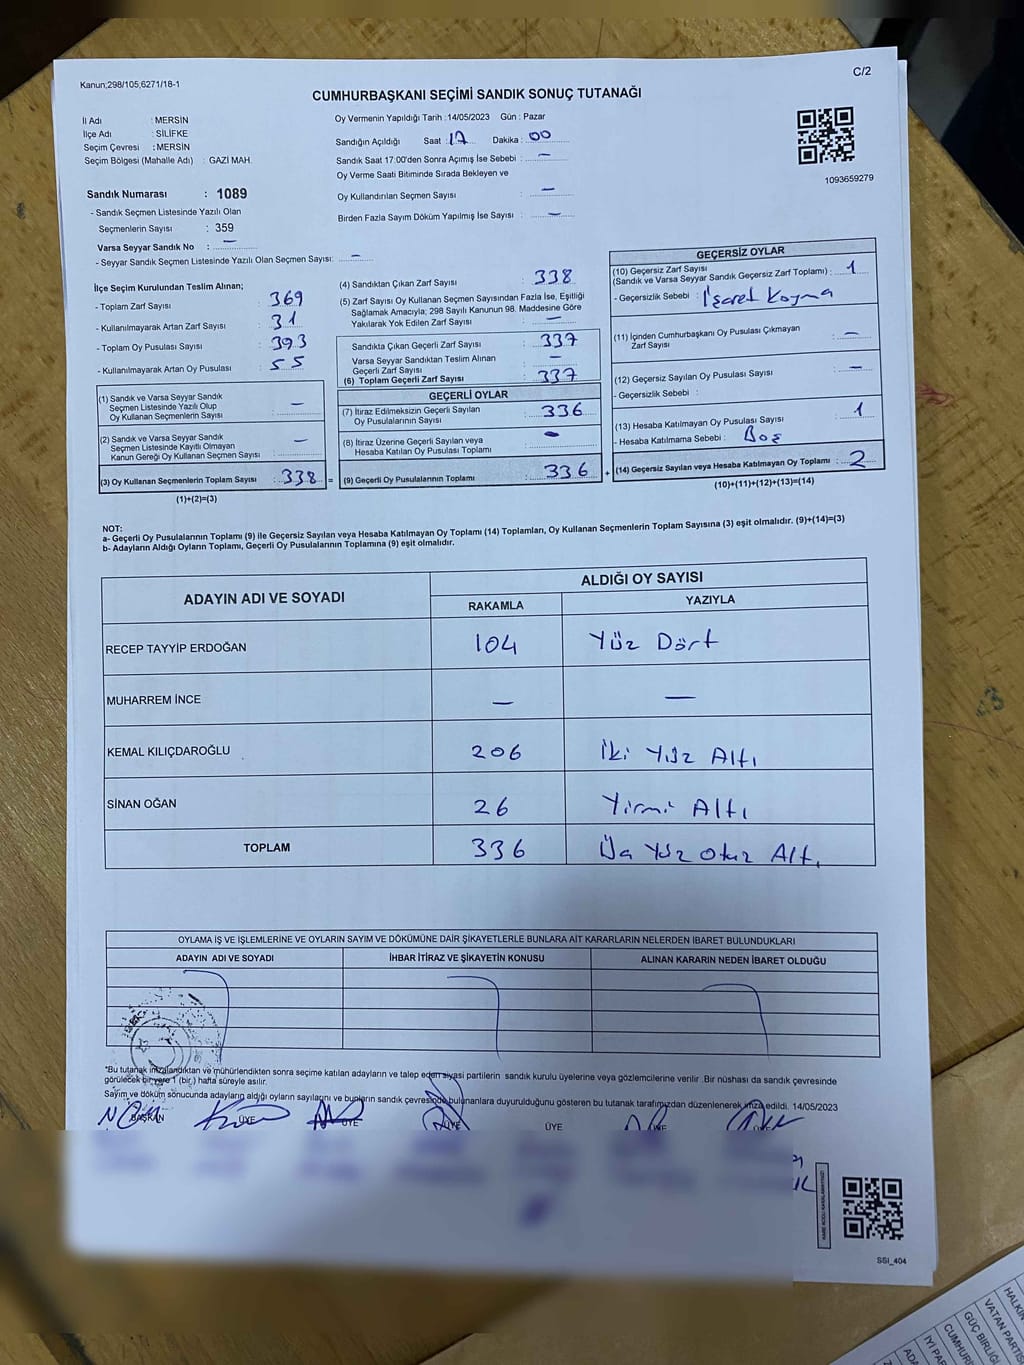 Kanun;298/105,6271/18-1
C/2
CUMHURBAŞKANI SEÇİMİ SANDIK SONUÇ TUTANAĞI
İl Adı : MERSİN
İlçe Adı : SİLİFKE
Seçim Çevresi : MERSİN
Seçim Bölgesi (Mahalle Adı) : GAZİ MAH.
Sandık Numarası : 1089
- Sandık Seçmen Listesinde Yazılı Olan
Seçmenlerin Sayısı : 359
Varsa Seyyar Sandık No : —
- Seyyar Sandık Seçmen Listesinde Yazılı Olan Seçmen Sayısı: —
Oy Vermenin Yapıldığı Tarih : 14/05/2023 Gün : Pazar
Sandığın Açıldığı Saat : 17 Dakika : 00
Sandık Saat 17:00'den Sonra Açımış İse Sebebi : —
Oy Verme Saati Bitiminde Sırada Bekleyen ve
Oy Kullandırılan Seçmen Sayısı : —
Birden Fazla Sayım Döküm Yapılmış İse Sayısı : —
1093659279
İlçe Seçim Kurulundan Teslim Alınan;
- Toplam Zarf Sayısı : 369
- Kullanılmayarak Artan Zarf Sayısı : 31
- Toplam Oy Pusulası Sayısı : 393
- Kullanılmayarak Artan Oy Pusulası : 55
(1) Sandık ve Varsa Seyyar Sandık
Seçmen Listesinde Yazılı Olup
Oy Kullanan Seçmenlerin Sayısı : —
(2) Sandık ve Varsa Seyyar Sandık
Seçmen Listesinde Kayıtlı Olmayan
Kanun Gereği Oy Kullanan Seçmen Sayısı : —
(3) Oy Kullanan Seçmenlerin Toplam Sayısı : 338 =
(1)+(2)=(3)
(4) Sandıktan Çıkan Zarf Sayısı : 338
(5) Zarf Sayısı Oy Kullanan Seçmen Sayısından Fazla İse, Eşitliği
Sağlamak Amacıyla; 298 Sayılı Kanunun 98. Maddesine Göre
Yakılarak Yok Edilen Zarf Sayısı : —
Sandıkta Çıkan Geçerli Zarf Sayısı : 337
Varsa Seyyar Sandıktan Teslim Alınan
Geçerli Zarf Sayısı : —
(6) Toplam Geçerli Zarf Sayısı : 337
GEÇERLİ OYLAR
(7) İtiraz Edilmeksizin Geçerli Sayılan
Oy Pusulalarının Sayısı : 336
(8) İtiraz Üzerine Geçerli Sayılan veya
Hesaba Katılan Oy Pusulası Toplamı : —
(9) Geçerli Oy Pusulalarının Toplamı : 336 +
GEÇERSİZ OYLAR
(10) Geçersiz Zarf Sayısı
(Sandık ve Varsa Seyyar Sandık Geçersiz Zarf Toplamı) : 1
- Geçersizlik Sebebi : İşaret Koyma
(11) İçinden Cumhurbaşkanı Oy Pusulası Çıkmayan
Zarf Sayısı : —
(12) Geçersiz Sayılan Oy Pusulası Sayısı : —
- Geçersizlik Sebebi :
(13) Hesaba Katılmayan Oy Pusulası Sayısı : 1
- Hesaba Katılmama Sebebi : Boş
(14) Geçersiz Sayılan veya Hesaba Katılmayan Oy Toplamı : 2
(10)+(11)+(12)+(13)=(14)
NOT:
a- Geçerli Oy Pusulalarının Toplamı (9) ile Geçersiz Sayılan veya Hesaba Katılmayan Oy Toplamı (14) Toplamları, Oy Kullanan Seçmenlerin Toplam Sayısına (3) eşit olmalıdır. (9)+(14)=(3)
b- Adayların Aldığı Oyların Toplamı, Geçerli Oy Pusulalarının Toplamına (9) eşit olmalıdır.
ADAYIN ADI VE SOYADI
ALDIĞI OY SAYISI
RAKAMLA YAZIYLA
RECEP TAYYİP ERDOĞAN 104 Yüz Dört
MUHARREM İNCE — —
KEMAL KILIÇDAROĞLU 206 İki Yüz Altı
SİNAN OĞAN 26 Yirmi Altı
TOPLAM 336 Üç Yüz Otuz Altı
OYLAMA İŞ VE İŞLEMLERİNE VE OYLARIN SAYIM VE DÖKÜMÜNE DAİR ŞİKAYETLERLE BUNLARA AİT KARARLARIN NELERDEN İBARET BULUNDUKLARI
ADAYIN ADI VE SOYADI İHBAR İTİRAZ VE ŞİKAYETİN KONUSU ALINAN KARARIN NEDEN İBARET OLDUĞU
*Bu tutanak imzalandıktan ve mühürlendikten sonra seçime katılan adayların ve talep eden siyasi partilerin sandık kurulu üyelerine veya gözlemcilerine verilir. Bir nüshası da sandık çevresinde
görülecek bir yere 1 (bir) hafta süreyle asılır.
Sayım ve döküm sonucunda adayların aldığı oyların sayılarını ve bunların sandık çevresinde bulunanlara duyurulduğunu gösteren bu tutanak tarafımızdan düzenlenerek imza edildi. 14/05/2023
BAŞKAN ÜYE ÜYE ÜYE ÜYE ÜYE ÜYE
SSİ_404
HALKIN
VATAN PARTİS
GÜÇ BİRLİĞİ
CUMHUR
İYİ PA
ADA